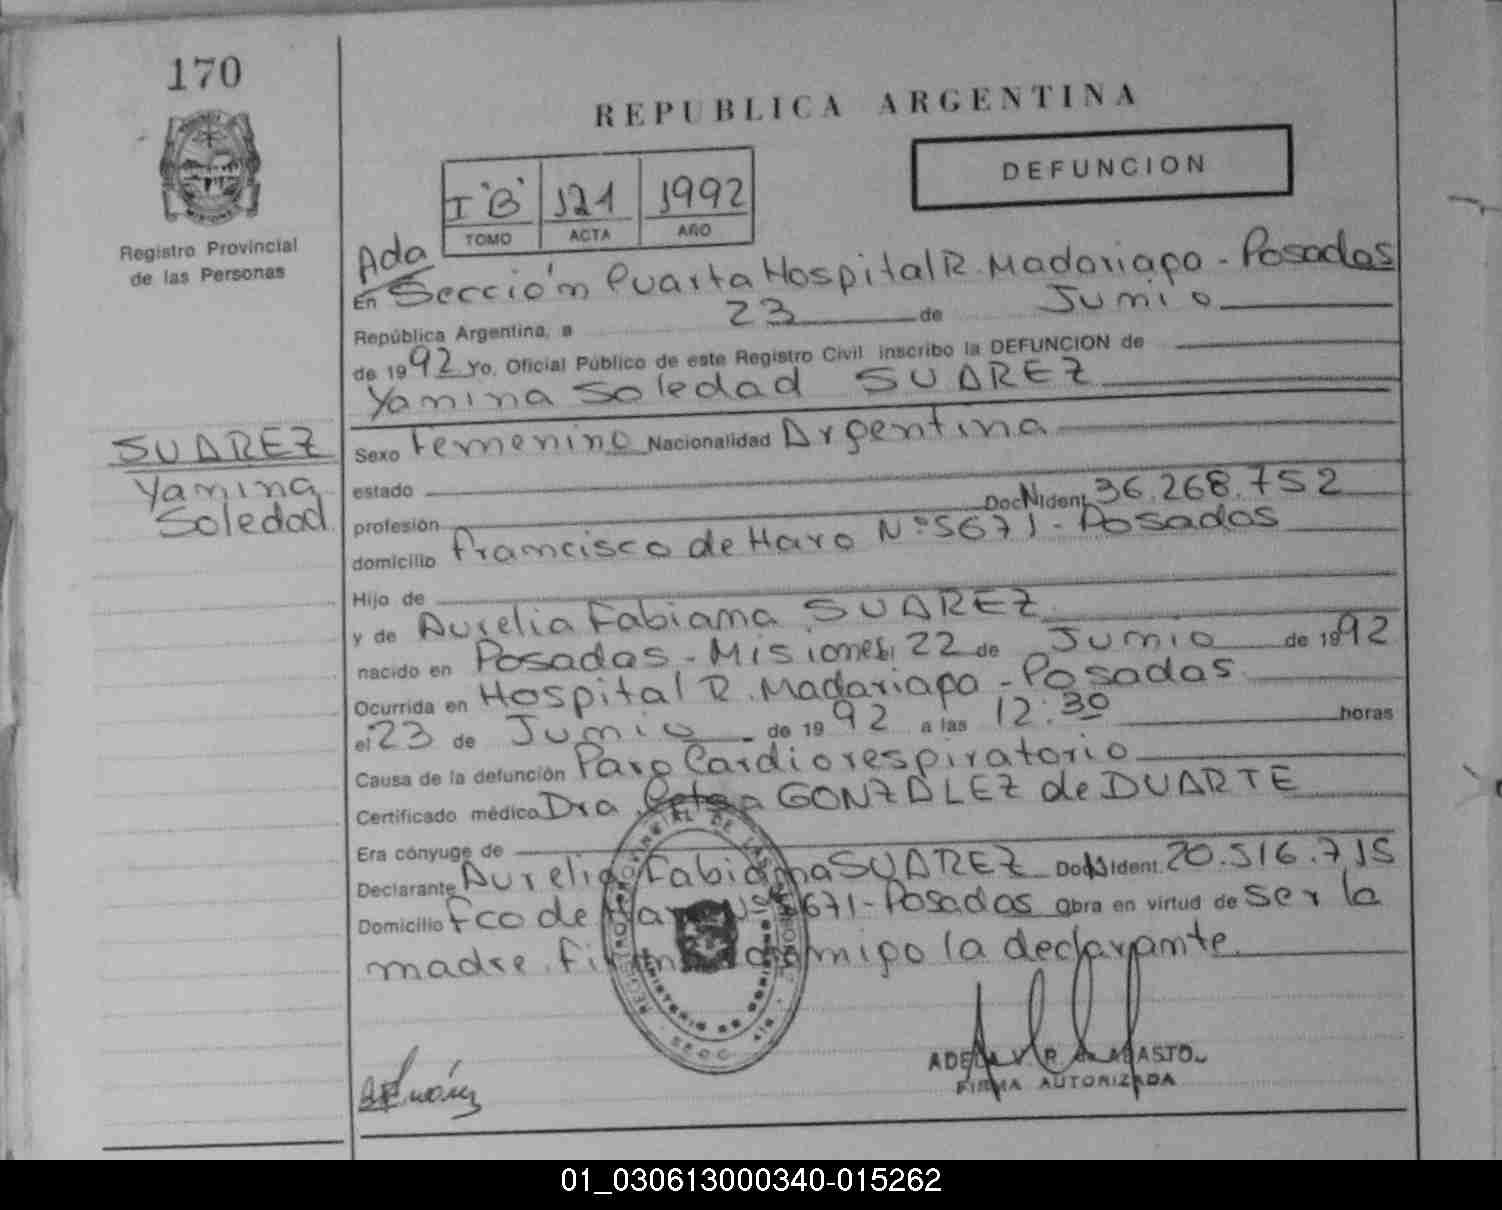 170
REPUBLICA ARGENTINA
DEFUNCION
I "B" 121 1992
TOMO ACTA AÑO
Registro Provincial
de las Personas
Ada
En Sección Cuarta Hospital R. Madariaga - Posadas
República Argentina, a 23 de Junio
de 1992 Yo, Oficial Público de este Registro Civil inscribo la DEFUNCION de
Yamina Soledad SUAREZ
SUAREZ
Yamina
Soledad
Sexo Femenino Nacionalidad Argentina
estado
profesión Doc N Ident. 36.268.752
domicilio Francisco de Haro Nº 5671 - Posadas
Hijo de
y de Aurelia Fabiana SUAREZ
nacido en Posadas - Misiones el 22 de Junio de 1992
Ocurrida en Hospital R. Madariaga - Posadas
el 23 de Junio de 1992 a las 12:30 horas
Causa de la defunción Paro Cardiorespiratorio
Certificado médico Dra. GONZALEZ de DUARTE
Era cónyuge de
Declarante Aurelia Fabiana SUAREZ Doc N Ident. 20.516.715
Domicilio Fco de Haro Nº 5671 - Posadas obra en virtud de ser la
madre. Firma conmigo la declarante.
REGISTRO PROVINCIAL DE LAS PERSONAS
MINISTERIO DE GOBIERNO
FIRMA AUTORIZADA
01_030613000340-015262